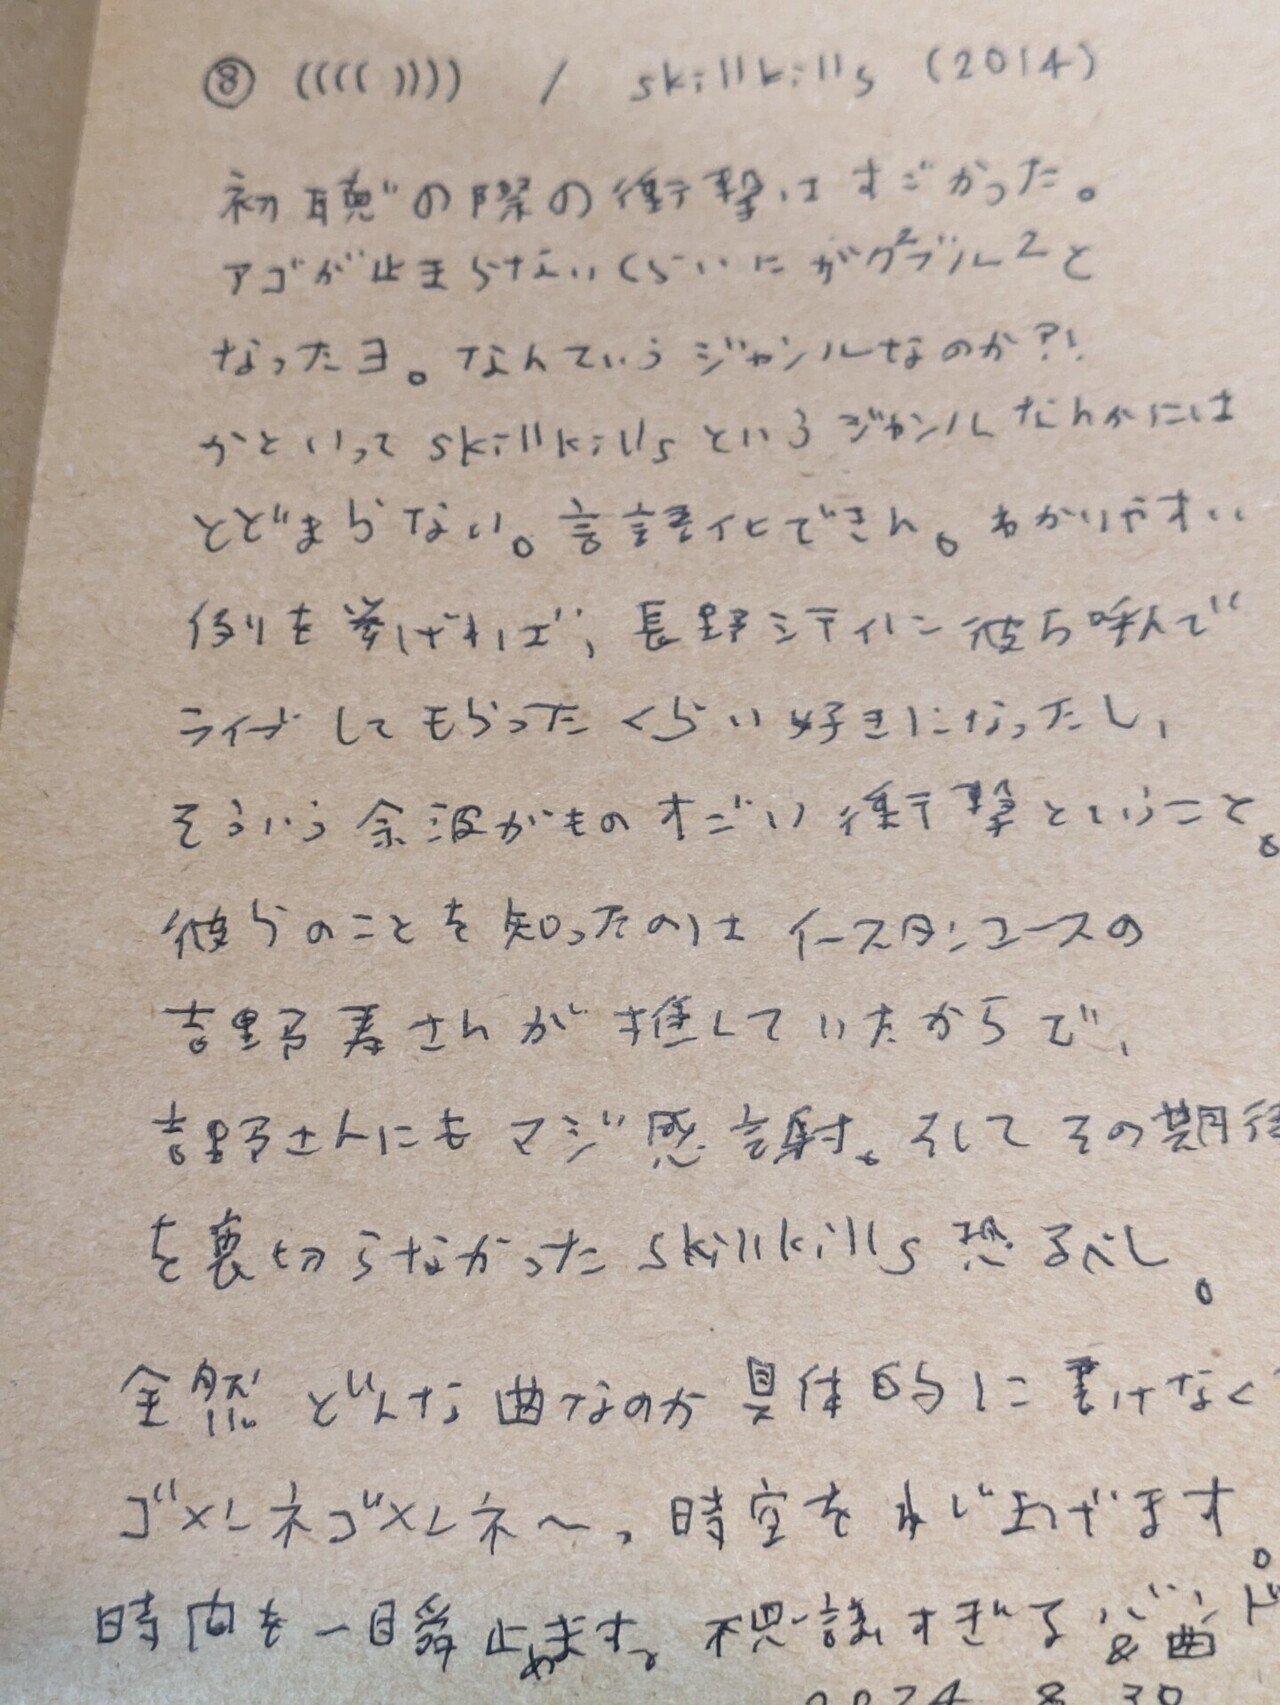 ⑧ (((( )))) / skillkills (2014)
初聴の際の衝撃はすごかった。
アゴが止まらないくらいにガク²ブル²と
なったヨ。なんていうジャンルなのか?!
かといって skillkills というジャンルなんかには
とどまらない。言語化できん。わかりやすい
例を挙げれば、長野シティに彼ら呼んで
ライブしてもらったくらい好きになったし、
そういう余波がものすごい衝撃ということ。
彼らのことを知ったのはイースタンユースの
吉野寿さんが推していたからで、
吉野さんにもマジ感謝。そしてその期待
を裏切らなかった skillkills 恐るべし。
全然どんな曲なのか具体的に書けなく
ゴメンネゴメンネ〜、時空をねじまげます。
時間を一瞬止めます。不思議すぎるバンド&曲
2024 8 30